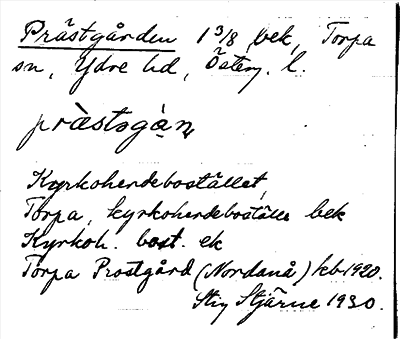 Prästgården 1 3/8 bek, Torpa
sn, Ydre hd, Österg. l.
prästsgàn
Kyrkoherdebostället,
Torpa, kyrkoherdeboställe bek
Kyrkoh. bost. ek
Torpa Prostgård (Nordanå) kb 1920.
Stig Stjärne 1930.